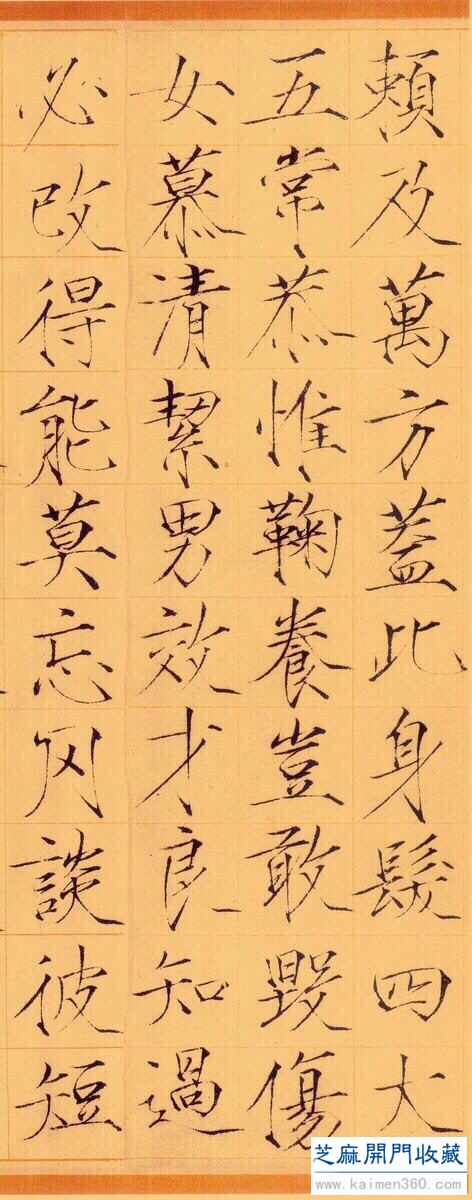 賴及萬方蓋此身髮四大
五常恭惟鞠養豈敢毀傷
女慕清絜男效才良知過
必改得能莫忘罔談彼短
芝麻開門收藏
www.kaimen360.com